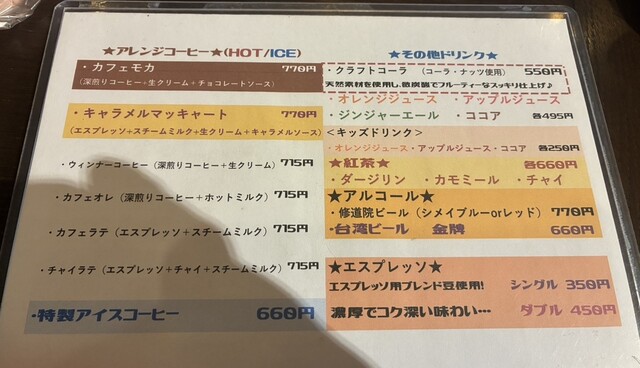 ★アレンジコーヒー★(HOT/ICE)
・カフェモカ 770円
(深煎りコーヒー+生クリーム+チョコレートソース)
・キャラメルマッキャート 770円
(エスプレッソ+スチームミルク+生クリーム+キャラメルソース)
・ウィンナーコーヒー (深煎りコーヒー+生クリーム) 715円
・カフェオレ (深煎りコーヒー+ホットミルク) 715円
・カフェラテ (エスプレッソ+スチームミルク) 715円
・チャイラテ (エスプレッソ+チャイ+スチームミルク) 715円
・特製アイスコーヒー 660円
★その他ドリンク★
・クラフトコーラ (コーラ・ナッツ使用) 550円
天然素材を使用し、微炭酸でフルーティーなスッキリ仕上げ♪
・オレンジジュース ・アップルジュース
・ジンジャーエール ・ココア 各495円
<キッズドリンク>
・オレンジジュース・アップルジュース・ココア 各250円
★紅茶★ 各660円
・ダージリン ・カモミール ・チャイ
★アルコール★
・修道院ビール (シメイブルーorレッド) 770円
・台湾ビール 金牌 660円
★エスプレッソ★
エスプレッソ用ブレンド豆使用! シングル 350円
濃厚でコク深い味わい… ダブル 450円